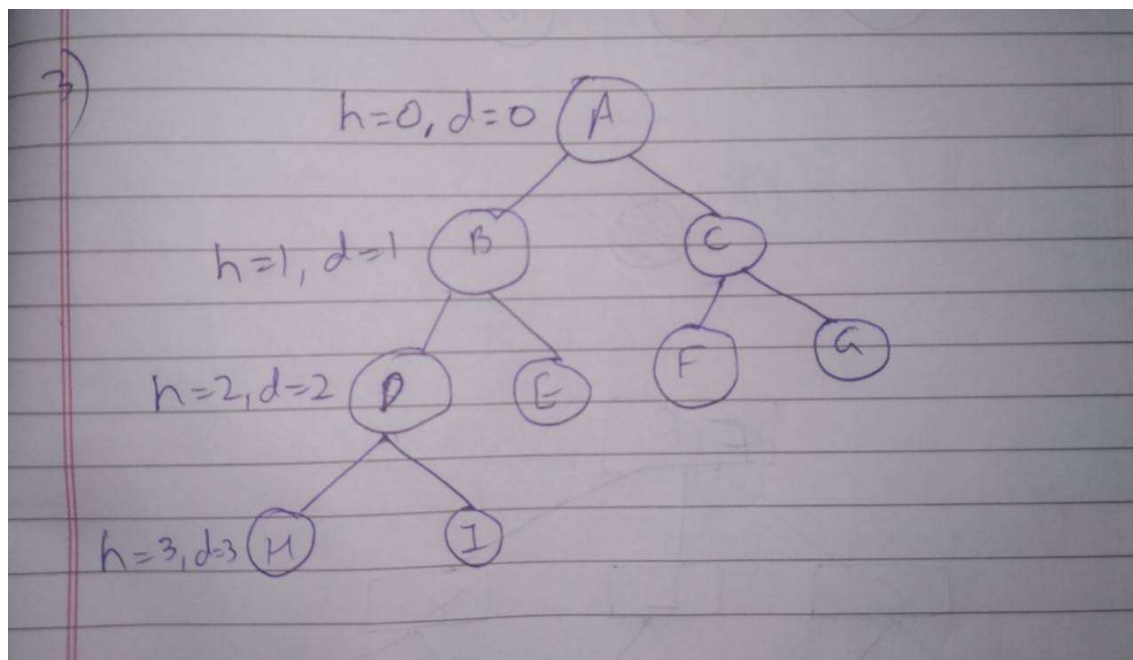 3)
h=0, d=0 A
h=1, d=1 B C
h=2, d=2 D E F G
h=3, d=3 H I